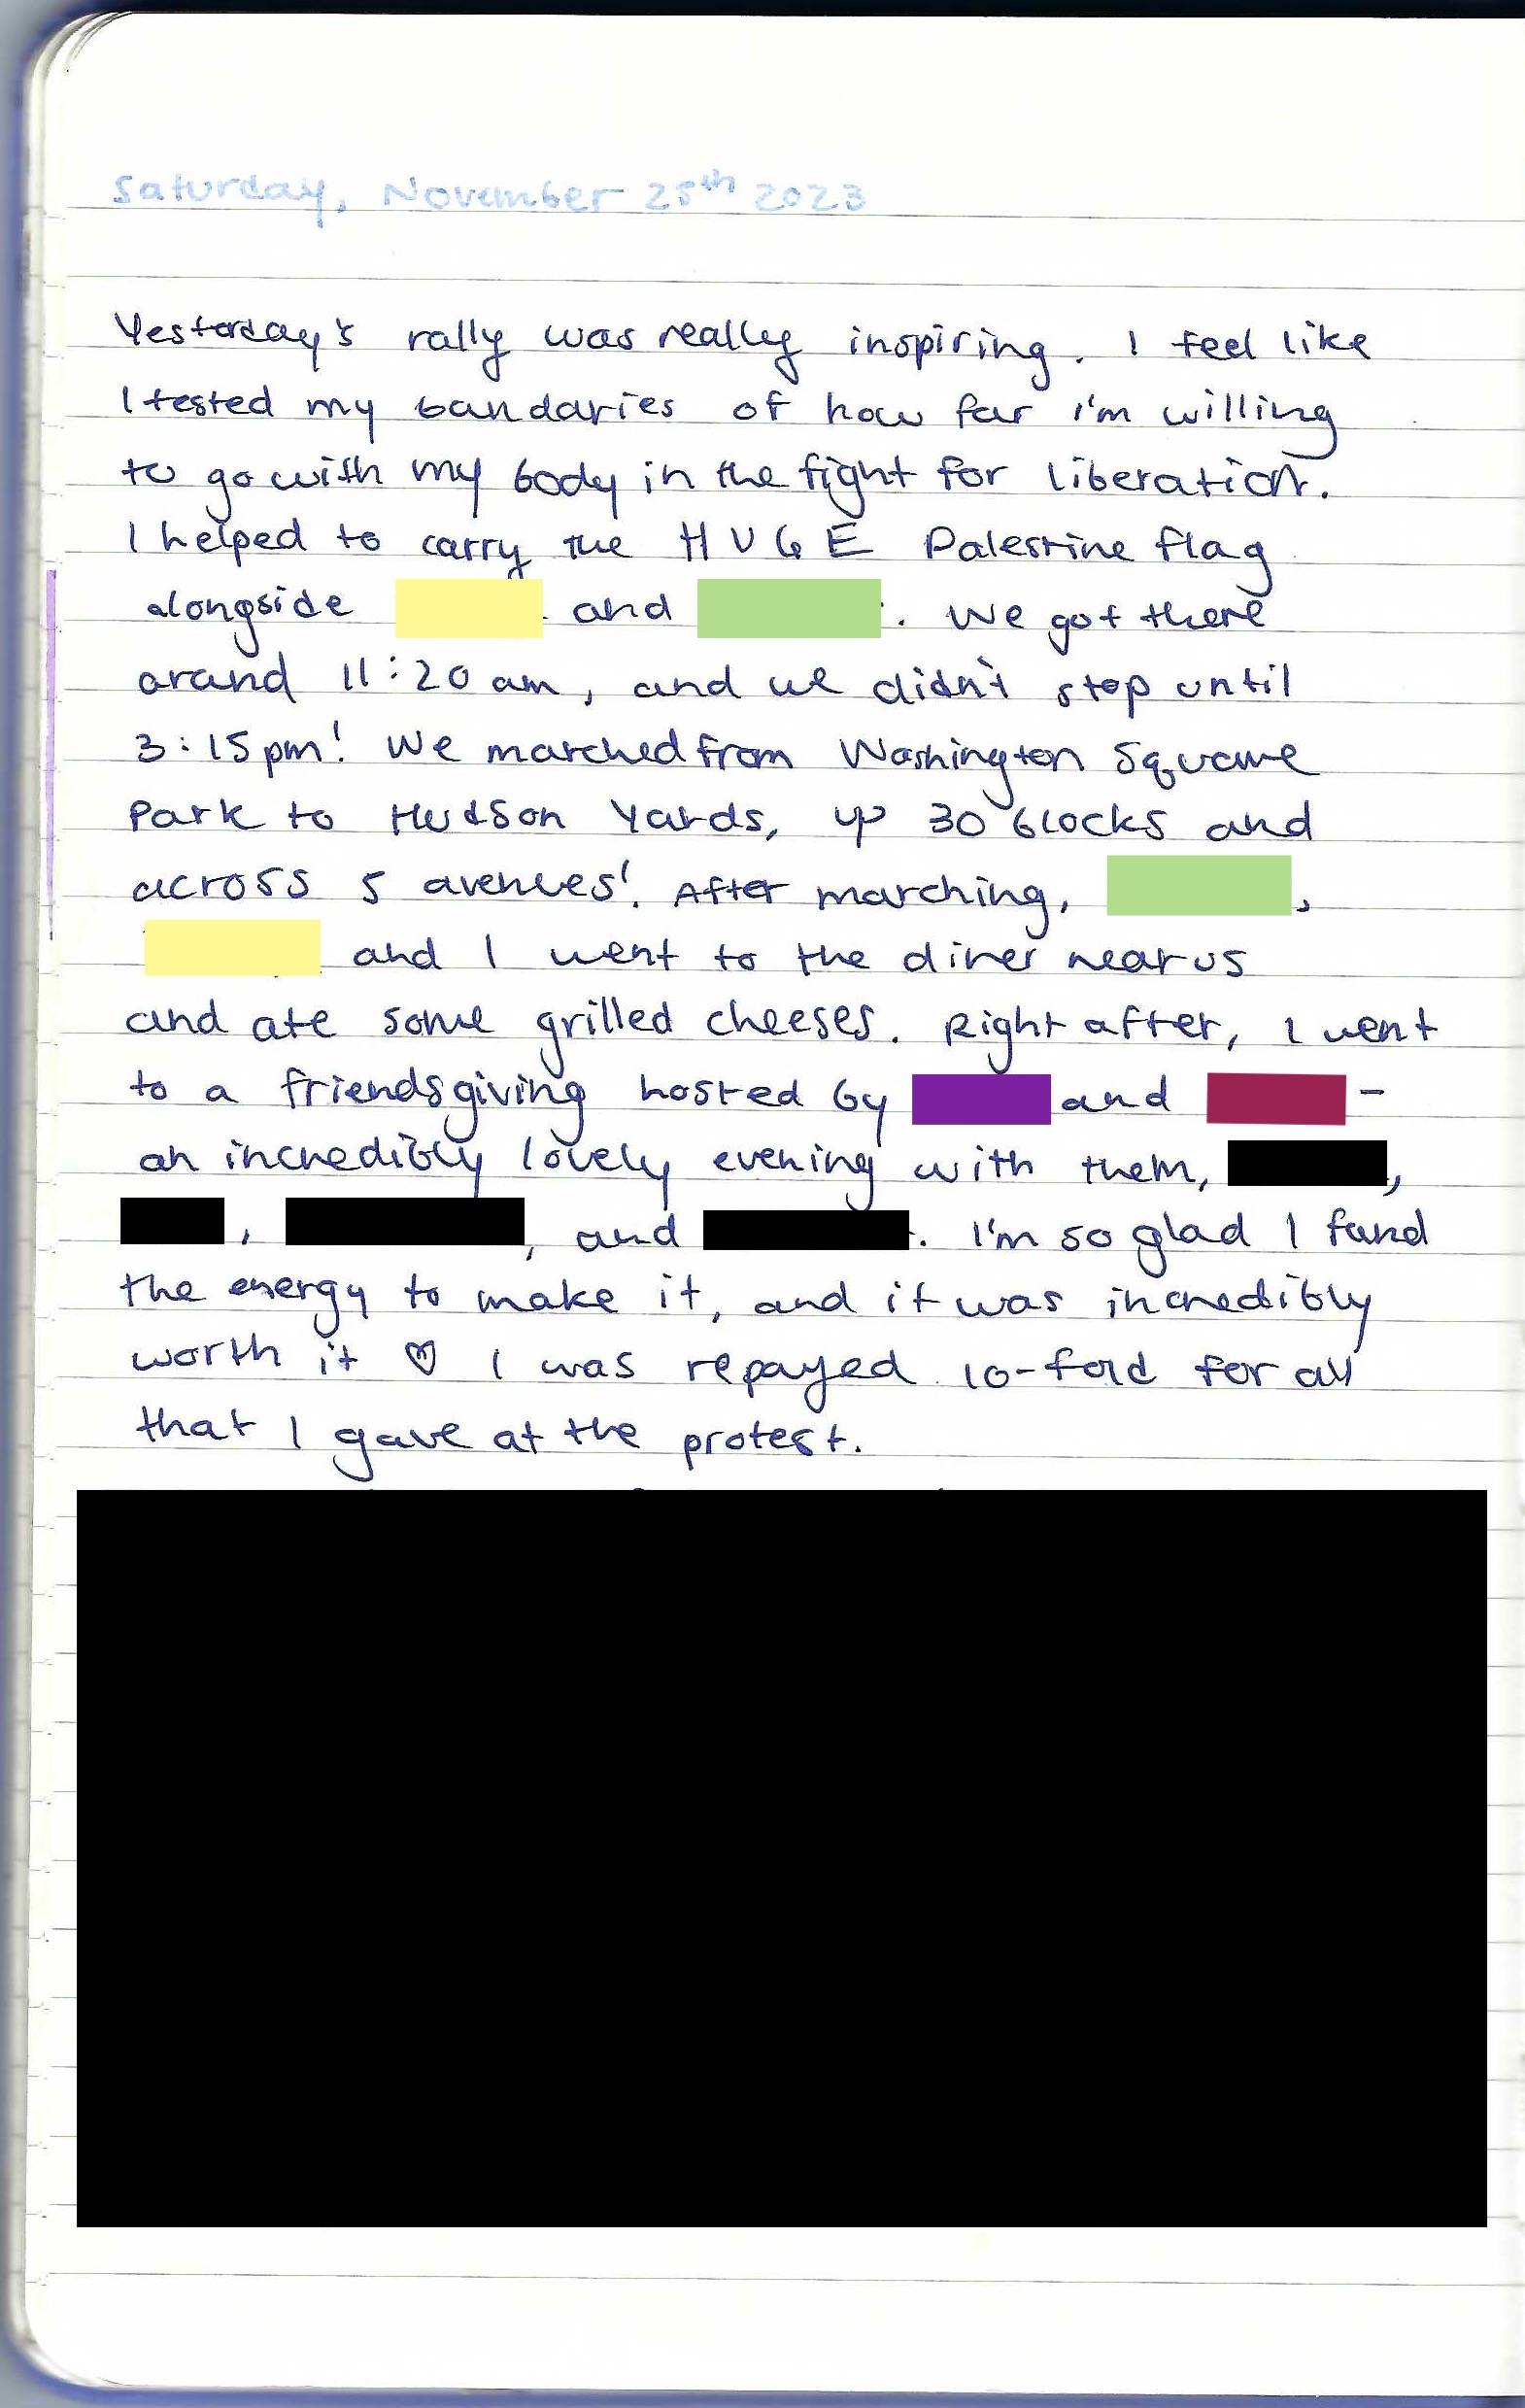 Saturday, November 25th 2023
Yesterday's rally was really inspiring. I feel like
I tested my bandaries of how far I'm willing
to go with my body in the fight for liberation.
I helped to carry the HUGE Palestine flag
alongside and . We got there
arand 11:20 am, and we didn't stop until
3:15 pm! We marched from Washington Square
Park to Hudson Yards, up 30 blocks and
across 5 avenues! After marching, ,
and I went to the diner near us
and ate some grilled cheeses. Right after, I went
to a friendsgiving hosted by and -
an incredibly lovely evening with them, ,
, , and . I'm so glad I fand
the energy to make it, and it was incredibly
worth it ♡ I was repayed 10-fold for all
that I gave at the protest.